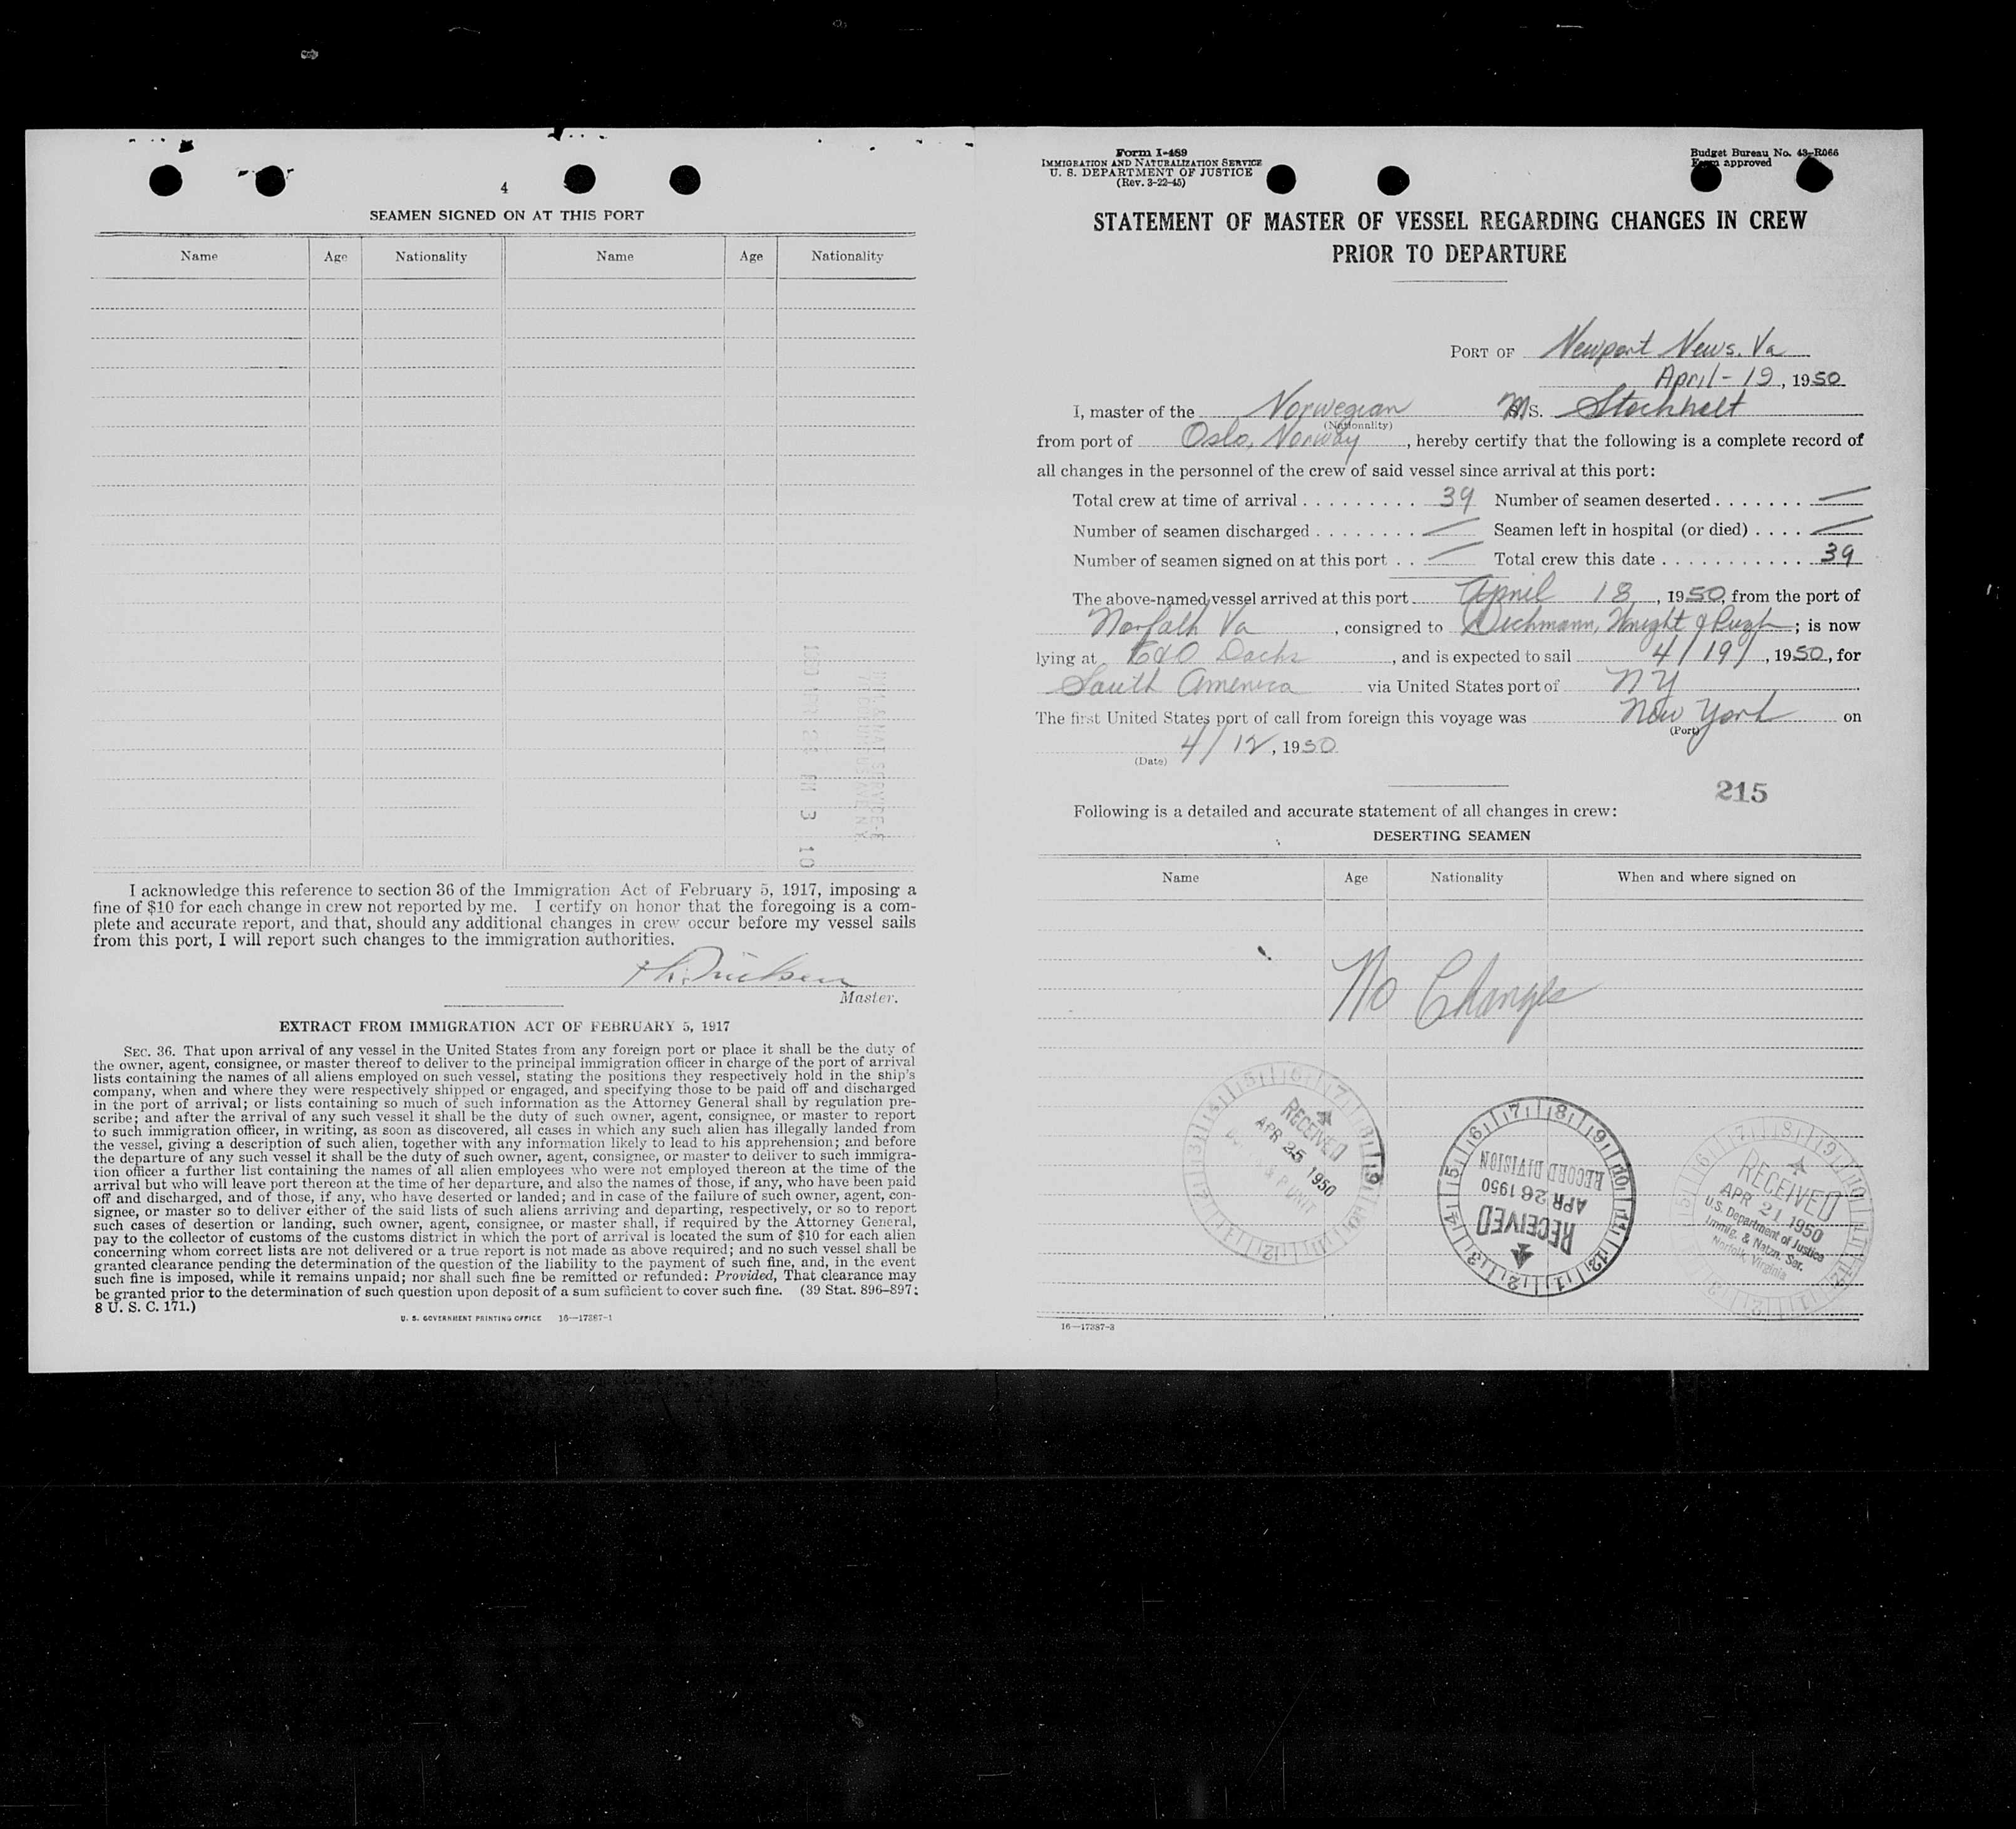 4
SEAMEN SIGNED ON AT THIS PORT
Name Age Nationality Name Age Nationality
I acknowledge this reference to section 36 of the Immigration Act of February 5, 1917, imposing a
fine of $10 for each change in crew not reported by me. I certify on honor that the foregoing is a com-
plete and accurate report, and that, should any additional changes in crew occur before my vessel sails
from this port, I will report such changes to the immigration authorities.
Master.
EXTRACT FROM IMMIGRATION ACT OF FEBRUARY 5, 1917
SEC. 36. That upon arrival of any vessel in the United States from any foreign port or place it shall be the duty of
the owner, agent, consignee, or master thereof to deliver to the principal immigration officer in charge of the port of arrival
lists containing the names of all aliens employed on such vessel, stating the positions they respectively hold in the ship's
company, when and where they were respectively shipped or engaged, and specifying those to be paid off and discharged
in the port of arrival; or lists containing so much of such information as the Attorney General shall by regulation pre-
scribe; and after the arrival of any such vessel it shall be the duty of such owner, agent, consignee, or master to report
to such immigration officer, in writing, as soon as discovered, all cases in which any such alien has illegally landed from
the vessel, giving a description of such alien, together with any information likely to lead to his apprehension; and before
the departure of any such vessel it shall be the duty of such owner, agent, consignee, or master to deliver to such immigra-
tion officer a further list containing the names of all alien employees who were not employed thereon at the time of the
arrival but who will leave port thereon at the time of her departure, and also the names of those, if any, who have been paid
off and discharged, and of those, if any, who have deserted or landed; and in case of the failure of such owner, agent, con-
signee, or master so to deliver either of the said lists of such aliens arriving and departing, respectively, or so to report
such cases of desertion or landing, such owner, agent, consignee, or master shall, if required by the Attorney General,
pay to the collector of customs of the customs district in which the port of arrival is located the sum of $10 for each alien
concerning whom correct lists are not delivered or a true report is not made as above required; and no such vessel shall be
granted clearance pending the determination of the question of the liability to the payment of such fine, and, in the event
such fine is imposed, while it remains unpaid; nor shall such fine be remitted or refunded: Provided, That clearance may
be granted prior to the determination of such question upon deposit of a sum sufficient to cover such fine. (39 Stat. 896-897;
8 U. S. C. 171.)
U. S. GOVERNMENT PRINTING OFFICE 16—17387-1
Form I-489
IMMIGRATION AND NATURALIZATION SERVICE
U. S. DEPARTMENT OF JUSTICE
(Rev. 3-22-45)
Budget Bureau No. 43-R066
Form approved
STATEMENT OF MASTER OF VESSEL REGARDING CHANGES IN CREW
PRIOR TO DEPARTURE
PORT OF Newport News, Va
April - 19, 1950
I, master of the Norwegian MS. Stockholt
(Nationality)
from port of Oslo, Norway, hereby certify that the following is a complete record of
all changes in the personnel of the crew of said vessel since arrival at this port:
Total crew at time of arrival . . . . . . . . . . 39 Number of seamen deserted . . . . . . . —
Number of seamen discharged . . . . . . . . — Seamen left in hospital (or died) . . . . —
Number of seamen signed on at this port . . — Total crew this date . . . . . . . . . . . . 39
The above-named vessel arrived at this port April 18, 1950, from the port of
Norfolk Va, consigned to Dichmann, Wright & Pugh; is now
lying at C&O Docks, and is expected to sail 4/19/, 1950, for
South America via United States port of NY
The first United States port of call from foreign this voyage was New York on
(Port)
4/12, 1950
(Date)
215
Following is a detailed and accurate statement of all changes in crew:
DESERTING SEAMEN
Name Age Nationality When and where signed on
No Changes
RECEIVED
APR 25 1950
RECEIVED
APR 26 1950
RECORD DIVISION
RECEIVED
APR 21 1950
U.S. Department of Justice
Immig. & Natzn. Ser.
Norfolk, Virginia
16—17387-3